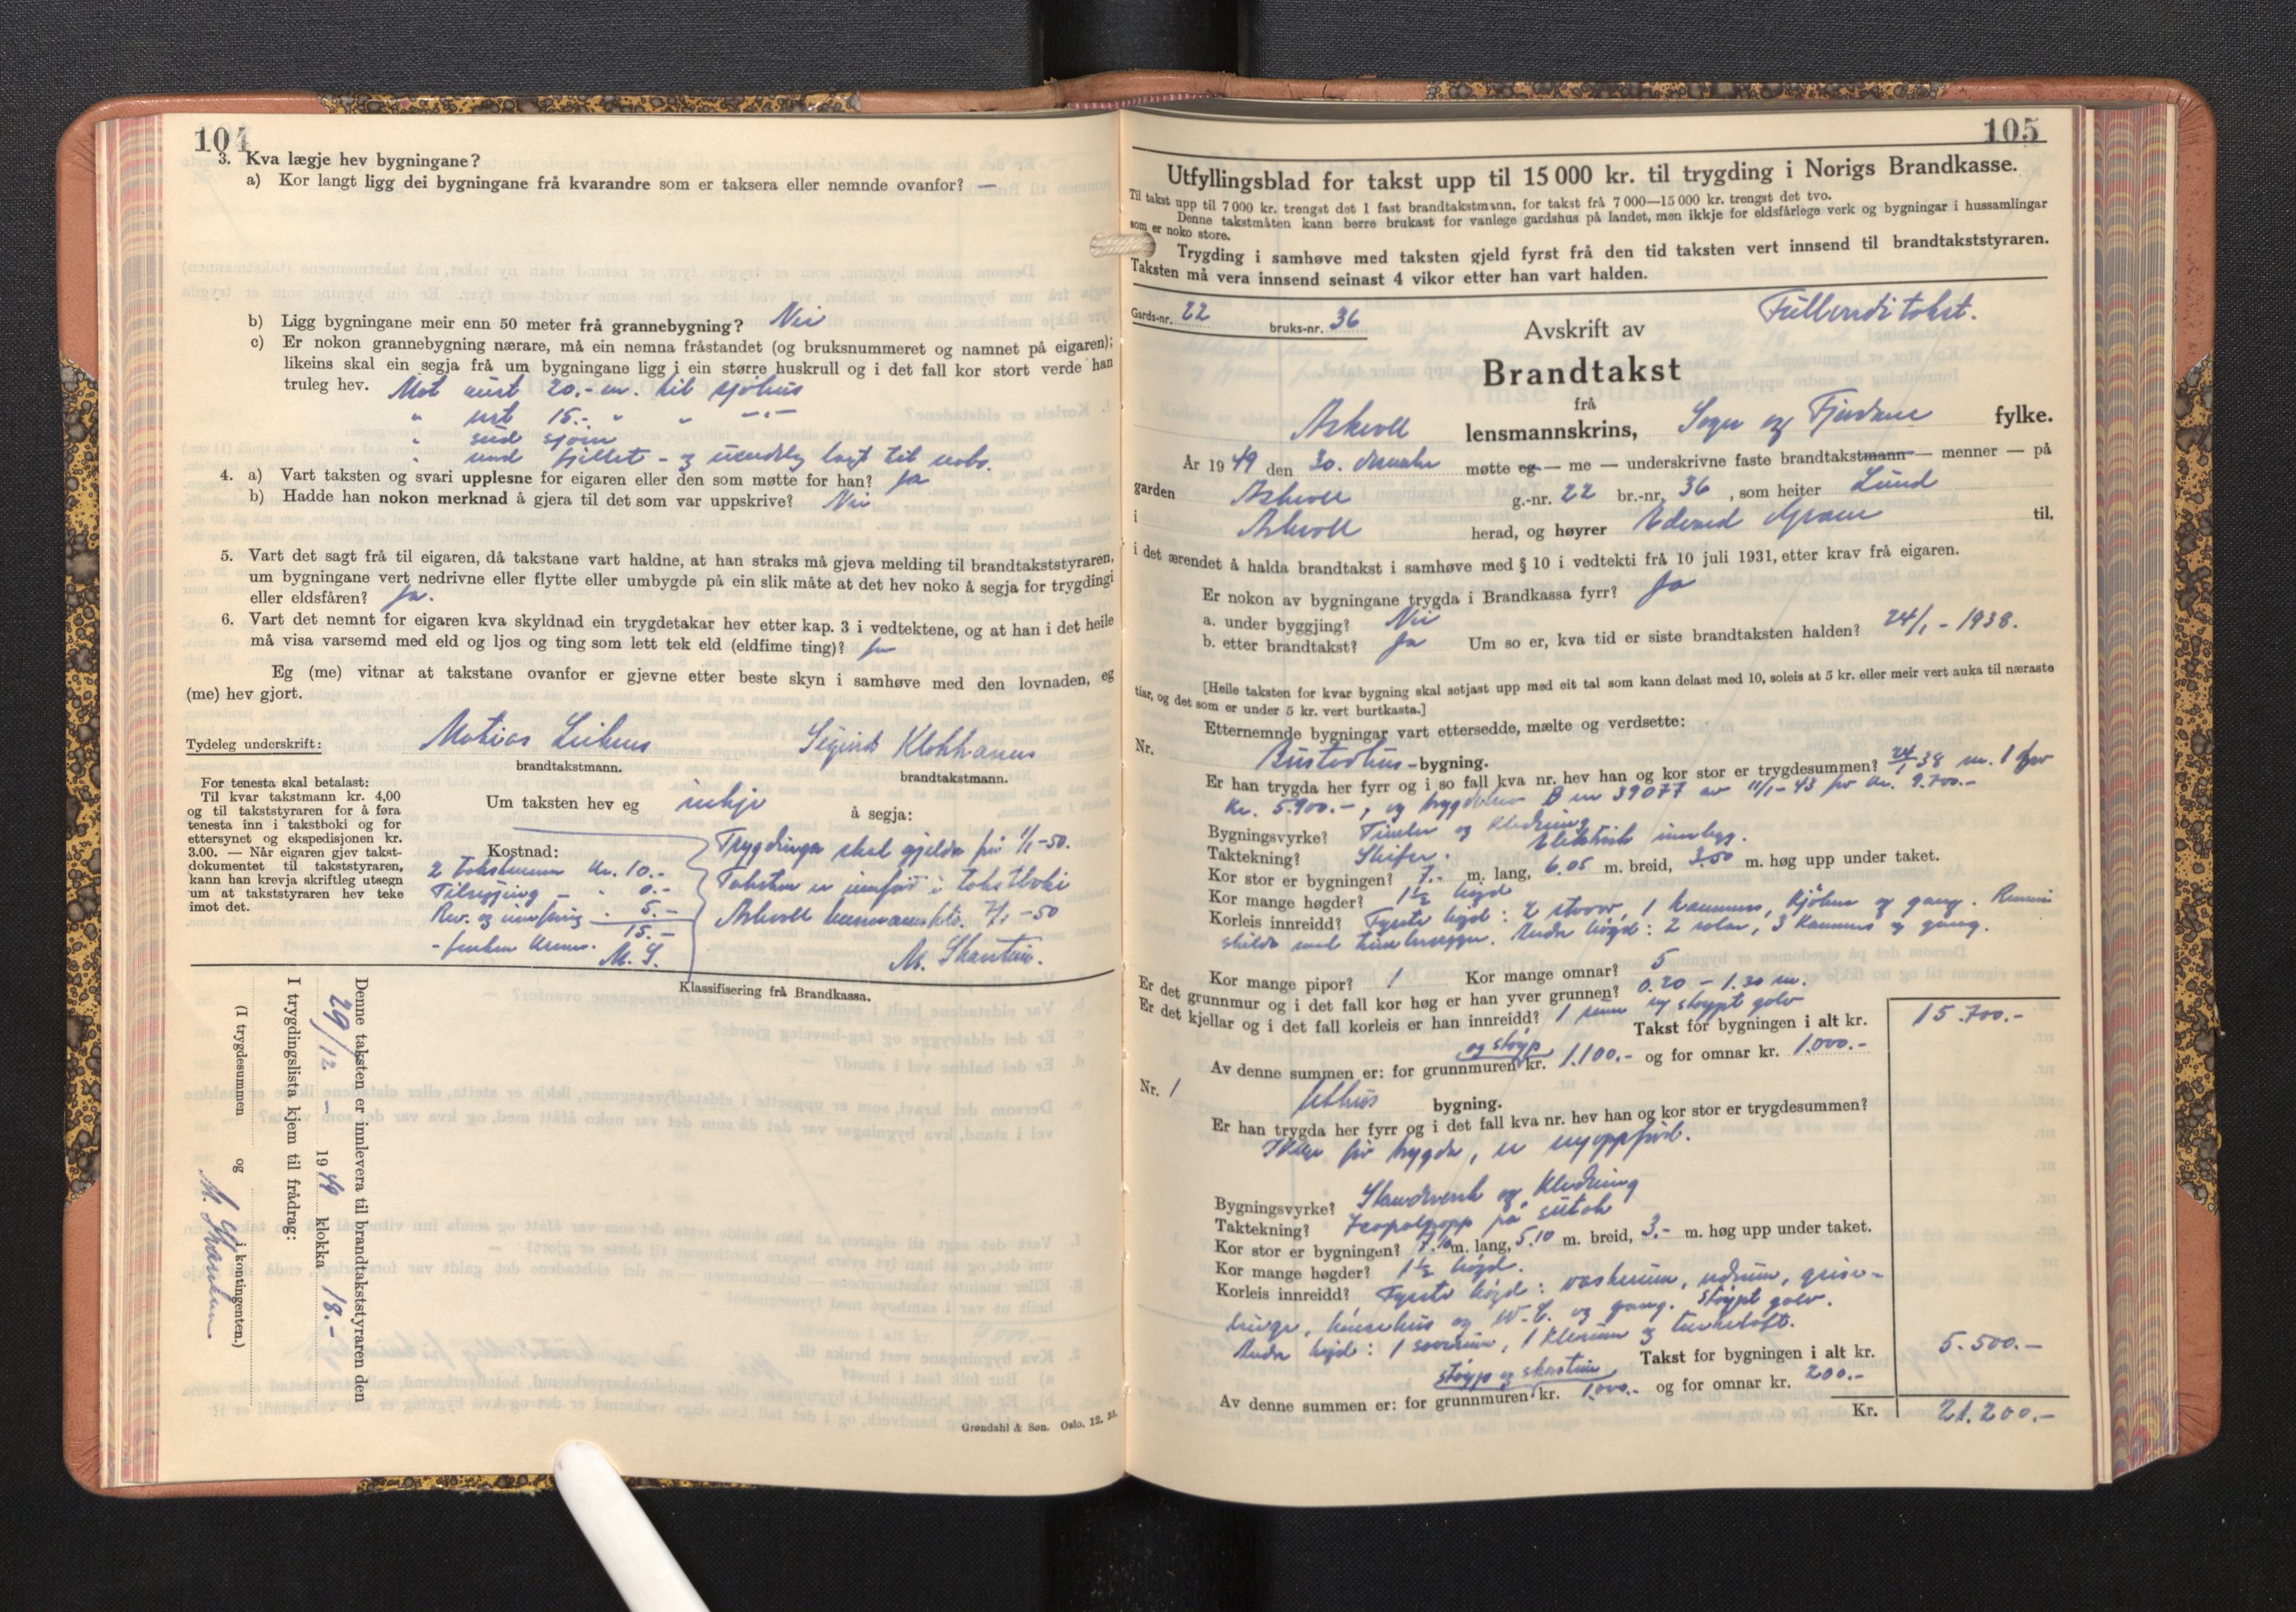 104
3. Kva lægje hev bygningane?
a) Kor langt ligg dei bygningane frå kvarandre som er taksera eller nemnde ovanfor? —
b) Ligg bygningane meir enn 50 meter frå grannebygning? Nei
c) Er nokon grannebygning nærare, må ein nemna fråstandet (og bruksnummeret og namnet på eigaren);
likeins skal ein segja frå um bygningane ligg i ein større huskrull og i det fall kor stort verde han
truleg hev. Mot aust 20.- m. til sjøhus
" vest 15.- " " —"—
" sud sjøen
" nord fjellet - og
4. a) Vart taksten og svari upplesne for eigaren eller den som møtte for han? Ja
b) Hadde han nokon merknad å gjera til det som var uppskrive? Nei
5. Vart det sagt frå til eigaren, då takstane vart haldne, at han straks må gjeva melding til brandtakststyraren,
um bygningane vert nedrivne eller flytte eller umbygde på ein slik måte at det hev noko å segja for trygdingi
eller eldsfåren? Ja.
6. Vart det nemnt for eigaren kva skyldnad ein trygdetakar hev etter kap. 3 i vedtektene, og at han i det heile
må visa varsemd med eld og ljos og ting som lett tek eld (eldfime ting)? Ja
Eg (me) vitnar at takstane ovanfor er gjevne etter beste skyn i samhøve med den lovnaden, eg
(me) hev gjort.
Tydeleg underskrift:
brandtakstmann.
brandtakstmann.
For tenesta skal betalast:
Til kvar takstmann kr. 4,00
og til takststyraren for å føra
tenesta inn i takstboki og for
ettersynet og ekspedisjonen kr.
3.00. — Når eigaren gjev takst-
dokumentet til takststyraren,
kann han krevja skriftleg utsegn
um at takststyraren hev teke
imot det.
Um taksten hev eg inkje å segja:
Kostnad:
2 takstmenn kr. 10.-
" 0.-
Rev. og innføring " 5.-
15.-
- femten kroner. M. S.
Trygdinga skal gjelda frå 1/1-50.
Taksten er innført i takstboki
Askvoll lensmannsktr. 7/1-50
Klassifisering frå Brandkassa.
Denne taksten er innlevera til brandtakststyraren den
29/12 - 1949 klokka 18.-
I trygdingslista kjem til frådrag:
(I trygdesummen og i kontingenten.)
Grøndahl & Søn. Oslo. 12.
105
Utfyllingsblad for takst upp til 15 000 kr. til trygding i Norigs Brandkasse.
Til takst upp til 7 000 kr. trengst det 1 fast brandtakstmann, for takst frå 7 000—15 000 kr. trengst det tvo.
Denne takstmåten kann berre brukast for vanlege gardshus på landet, men ikkje for eldsfårlege verk og bygningar i hussamlingar
som er noko store.
Trygding i samhøve med taksten gjeld fyrst frå den tid taksten vert innsend til brandtakststyraren.
Taksten må vera innsend seinast 4 vikor etter han vart halden.
Gards-nr. 22 bruks-nr. 36
Avskrift av
Brandtakst
frå
Askvoll lensmannskrins, Sogn og Fjordane fylke.
År 1949 den 30. møtte eg — me — underskrivne faste brandtakstmann — menner — på
garden Askvoll g.-nr. 22 br.-nr. 36, som heiter Lund
i Askvoll herad, og høyrer Edvard til,
i det ærendet å halda brandtakst i samhøve med § 10 i vedtekti frå 10 juli 1931, etter krav frå eigaren.
Er nokon av bygningane trygda i Brandkassa fyrr? Ja
a. under byggjing? Nei
b. etter brandtakst? Ja Um so er, kva tid er siste brandtaksten halden? 24/1 - 1938.
[Heile taksten for kvar bygning skal setjast upp med eit tal som kann delast med 10, soleis at 5 kr. eller meir vert auka til næraste
tiar, og det som er under 5 kr. vert burtkasta.]
Etternemnde bygningar vart ettersedde, mælte og verdsette:
Nr. Bustadhus-bygning.
Er han trygda her fyrr og i so fall kva nr. hev han og kor stor er trygdesummen? 24/1 38 nr. 1 for
kr. 5.900.-, og B nr 39077 av 11/1-43 for kr. 9.700.-
Bygningsvyrke? Timber og kledning
Taktekning? Skifer. Elektrisk innlegg.
Kor stor er bygningen? 7.- m. lang, 6.05 m. breid, 3.50 m. høg upp under taket.
Kor mange høgder? 1½ høgd
Korleis innreidd? Fyrste høgd: 2 stover, 1 kammers, kjøken og gang.
skilde med timbrvegger. Andre høgd: 2 , 3 kammers og gang.
Kor mange pipor? 1 Kor mange omnar? 5
Er det grunnmur og i det fall kor høg er han yver grunnen? 0.20 - 1.30 m.
Er det kjellar og i det fall korleis er han innreidd? 1 rum og støypt golv
Takst for bygningen i alt kr. 15.700.-
og støyp
Av denne summen er: for grunnmuren kr. 1.100.- og for omnar kr. 1.000.-
Nr. 1 Uthus bygning.
Er han trygda her fyrr og i det fall kva nr. hev han og kor stor er trygdesummen?
Ikkje før trygda, er nyoppført.
Bygningsvyrke? Standverk og kledning
Taktekning? på sutak
Kor stor er bygningen? 7.10 m. lang, 5.10 m. breid, 3.- m. høg upp under taket.
Kor mange høgder? 1½ høgd.
Korleis innreidd? Fyrste høgd: vaskerum, vedrum, grise-
binge, hønsehus og W.C. og gang. Støypt golv.
Andre høgd: 1 soverum, 1 og
Takst for bygningen i alt kr. 5.500.-
støyp og skorstein
Av denne summen er: for grunnmuren kr. 1.000.- og for omnar kr. 200.-
Kr. 21.200.-